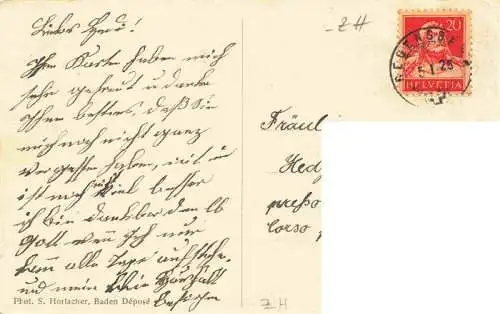 Liebes Hedi!
Ihre Karten haben mich
sehr gefreut u danke
Ihnen bestens, daß Sie
mich noch nicht ganz
vergessen haben, mit
ist noch nicht viel besser
ich bin dankbar den lb
Gott wenn ich nur
kann alle Tage aufstehen
und mein
Phot. S. Horlacher, Baden Déposé
ZH
20
REGENSBE
1.25
HELVETIA
Fräul
Hed
presso
corso
ZH